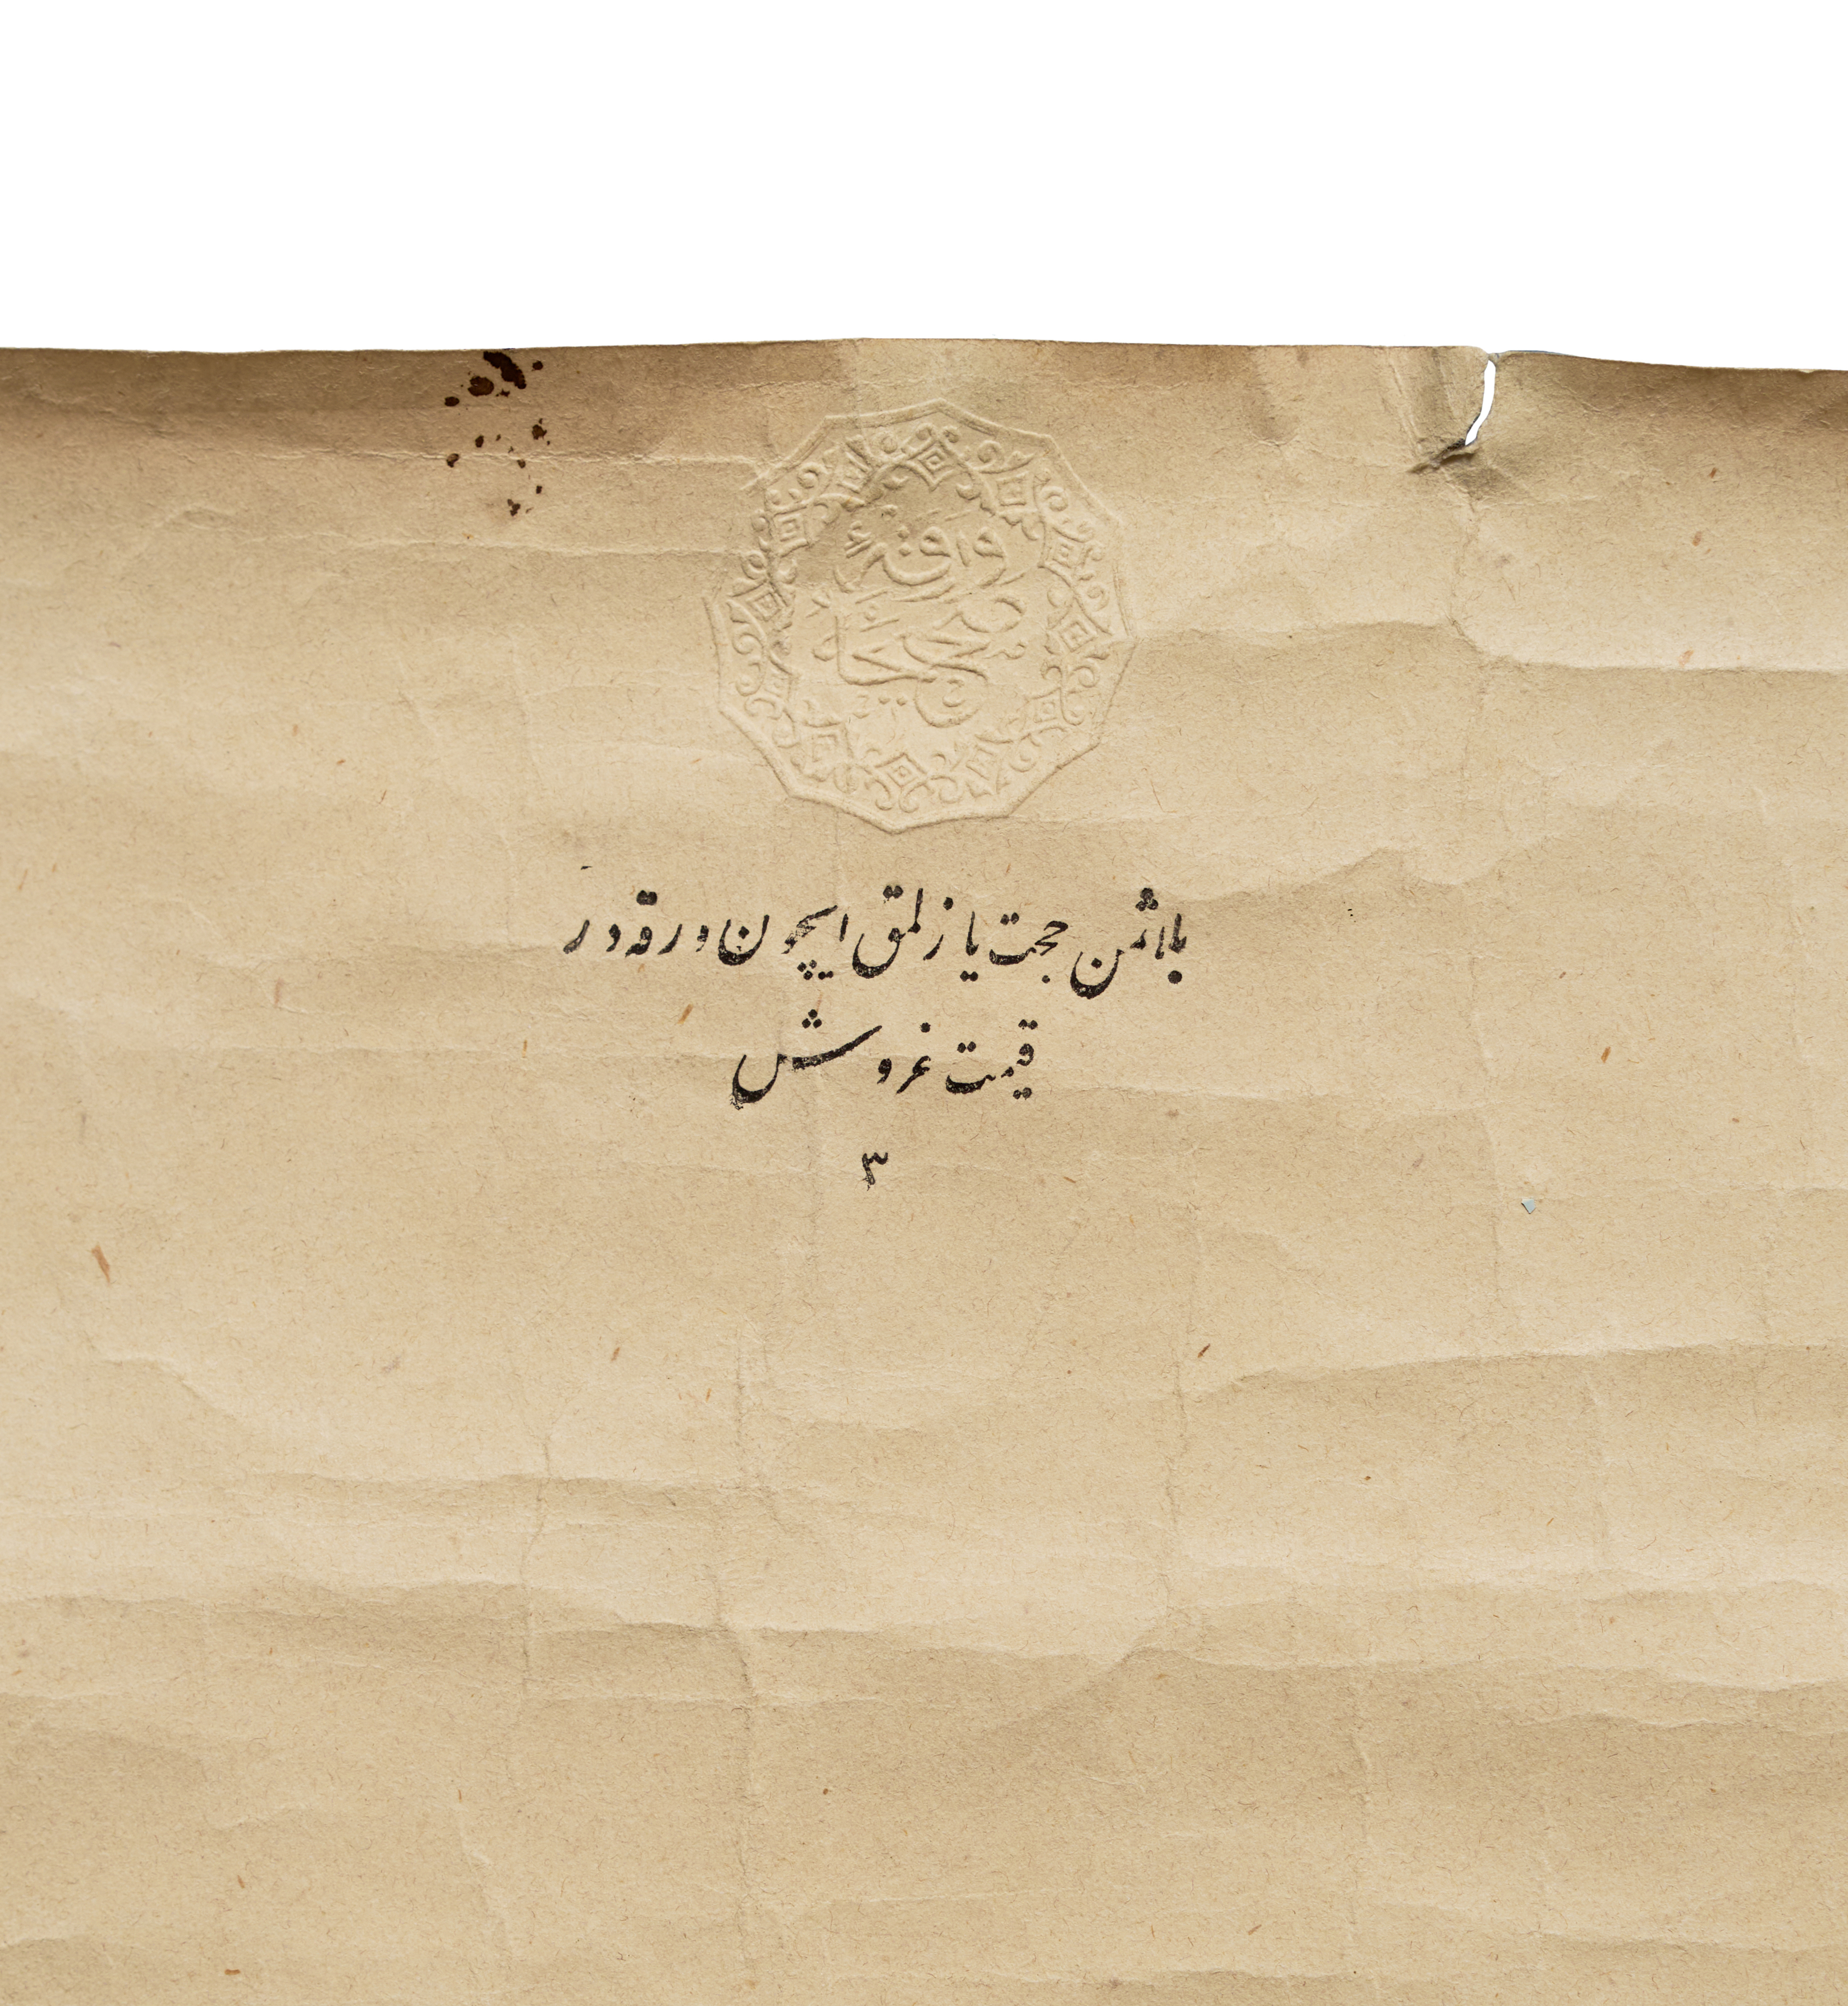 بااثمن حجت يازلمق ايچون ورقه در
قيمت غروش
٣